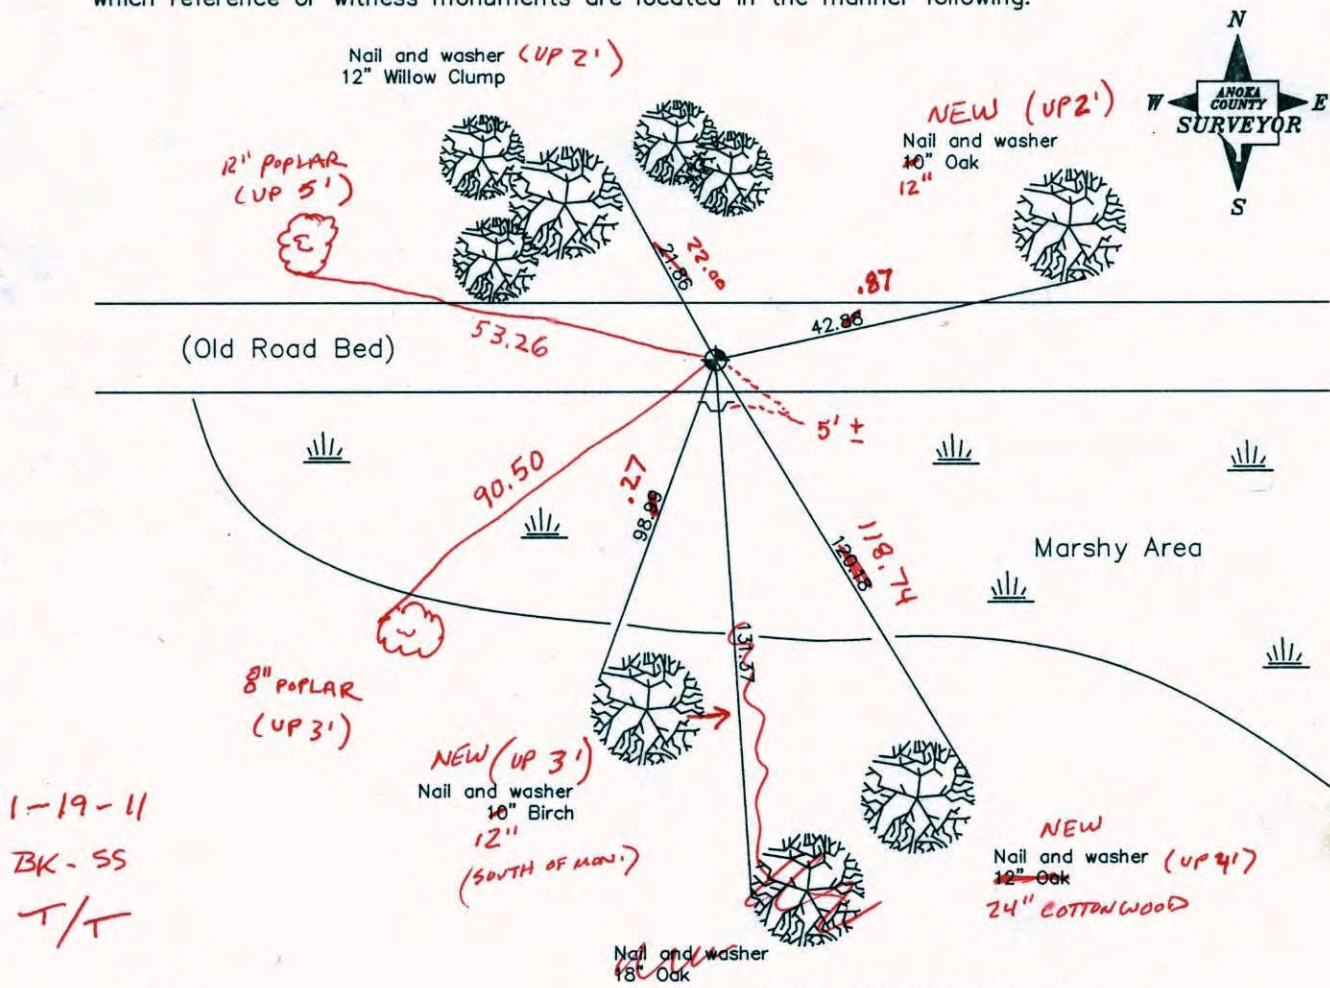 which reference or witness monuments are located in the manner following:
N
W
E
S
ANOKA
COUNTY
SURVEYOR
Nail and washer (UP 2')
12" Willow Clump
NEW (UP 2')
Nail and washer
10" Oak
12"
12" POPLAR
(UP 5')
21.86
22.00
.87
42.88
53.26
(Old Road Bed)
5' ±
90.50
.27
98.99
118.74
120.18
Marshy Area
131.37
8" POPLAR
(UP 3')
NEW (UP 3')
Nail and washer
10" Birch
12"
(SOUTH OF MON.)
1-19-11
BK - SS
T/T
NEW
Nail and washer (UP 4')
12" Oak
24" COTTONWOOD
Nail and washer
18" Oak